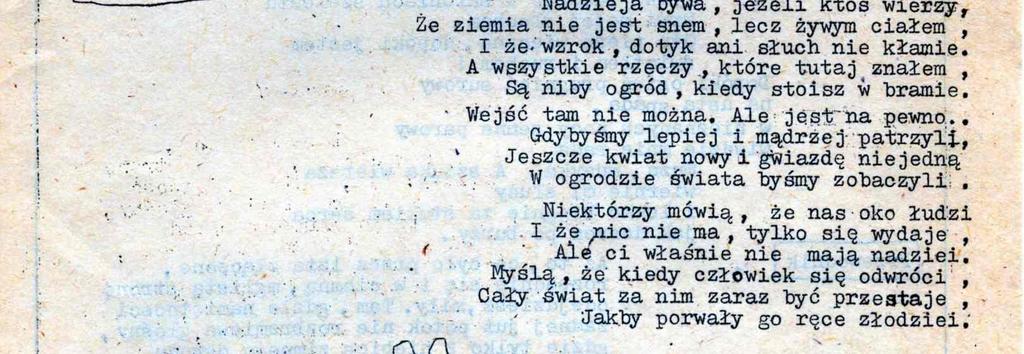 Nadzieja bywa, jeżeli ktoś wierzy,
Że ziemia nie jest snem, lecz żywym ciałem,
I że wzrok, dotyk ani słuch nie kłamie.
A wszystkie rzeczy, które tutaj znałem,
Są niby ogród, kiedy stoisz w bramie.
Wejść tam nie można. Ale jest na pewno..
Gdybyśmy lepiej i mądrzej patrzyli,
Jeszcze kwiat nowy i gwiazdę niejedną
W ogrodzie świata byśmy zobaczyli.
Niektórzy mówią, że nas oko łudzi
I że nic nie ma, tylko się wydaje,
Ale ci właśnie nie mają nadziei.
Myślą, że kiedy człowiek się odwróci,
Cały świat za nim zaraz być przestaje,
Jakby porwały go ręce złodziei.